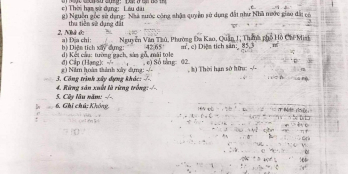 e) Thời hạn sử dụng: Lâu dài
g) Nguồn gốc sử dụng: Nhà nước công nhận quyền sử dụng đất như Nhà nước giao đất có
thu tiền sử dụng đất
2. Nhà ở:
a) Địa chỉ: Nguyễn Văn Thủ, Phường Đa Kao, Quận 1, Thành phố Hồ Chí Minh
b) Diện tích xây dựng: 42,65 m², c) Diện tích sàn: 85,3 m²
d) Kết cấu: tường gạch, sàn gỗ, mái tole
đ) Cấp (Hạng): -/- , e) Số tầng: 02.
g) Năm hoàn thành xây dựng: -/- , h) Thời hạn sở hữu: -/-
3. Công trình xây dựng khác: -/-
4. Rừng sản xuất là rừng trồng: -/-.
5. Cây lâu năm: -/-
6. Ghi chú: Không.